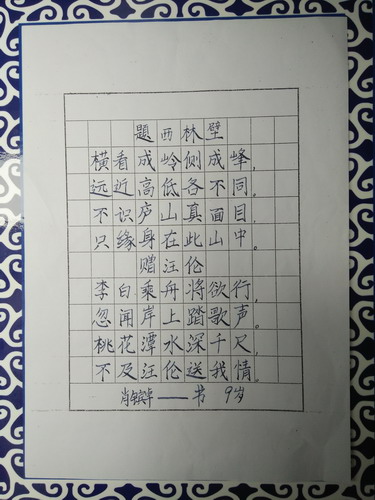 题西林壁
横看成岭侧成峰,
远近高低各不同。
不识庐山真面目,
只缘身在此山中。
赠汪伦
李白乘舟将欲行,
忽闻岸上踏歌声。
桃花潭水深千尺,
不及汪伦送我情。
肖 —— 书 9岁